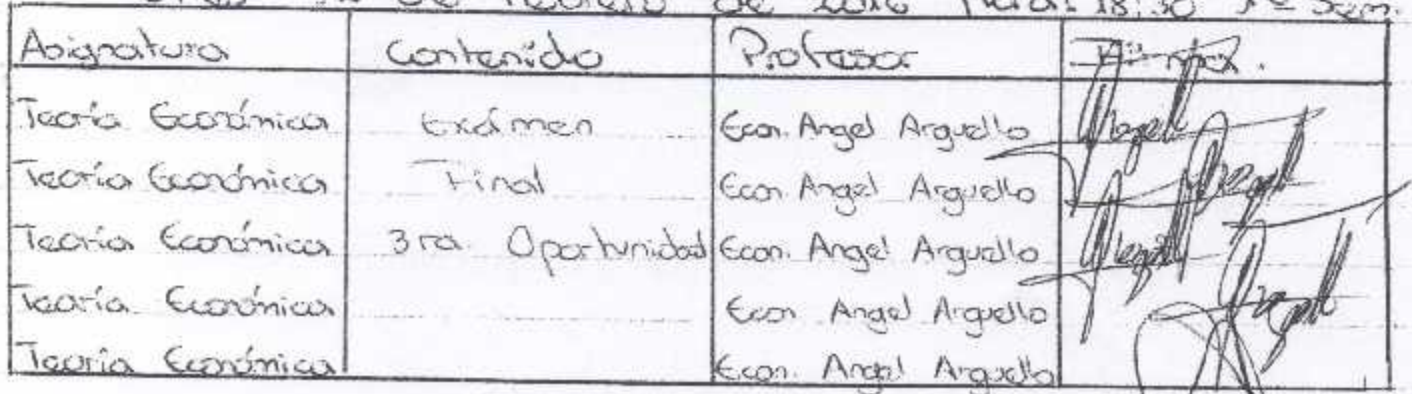 de Febrero de Hora: 18:30 Sem.
Asignatura Contenido Profesor Firma.
Teoría Económica Exámen Econ. Angel Arguello
Teoría Económica Final Econ. Angel Arguello
Teoría Económica 3ra. Oportunidad Econ. Angel Arguello
Teoría Económica Econ. Angel Arguello
Teoría Económica Econ. Angel Arguello